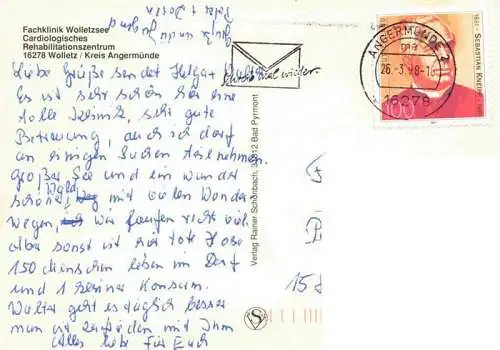 Fachklinik Wolletzsee
Cardiologisches
Rehabilitationszentrum
16278 Wolletz / Kreis Angermünde
Liebe Grüße sendet Helga + Walter
Es ist sehr schön hier eine
tolle Klinik, sehr gute
Betreuung, auch ich darf
an einigen Sachen teilnehmen.
Großer See und ein wunder
schöner Wald mit vielen Wander
wegen, wir laufen recht viel
aber sonst ist hier tote Hose
150 Menschen leben im Dorf
und 1 kleiner Konsum.
Walter geht es täglich besser
man ist zufrieden mit Ihm
Alles liebe für Euch
Verlag Rainer Schönbach, 31812 Bad Pyrmont
wieder.
ANGERMÜNDE 2
26.-3.98-1
16278
SEBASTIAN KNEIPP
100
1821